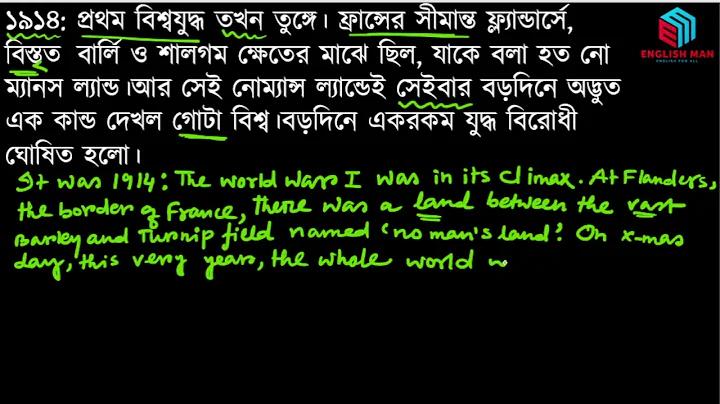 ১৯১৪: প্রথম বিশ্বযুদ্ধ তখন তুঙ্গে। ফ্রান্সের সীমান্ত ফ্ল্যান্ডার্সে,
বিস্তৃত বার্লি ও শালগম ক্ষেতের মাঝে ছিল, যাকে বলা হত নো
ম্যানস ল্যান্ড।আর সেই নোম্যান্স ল্যান্ডেই সেইবার বড়দিনে অদ্ভুত
এক কান্ড দেখল গোটা বিশ্ব।বড়দিনে একরকম যুদ্ধ বিরোধী
ঘোষিত হলো।
ENGLISH MAN
ENGLISH FOR ALL
It was 1914: The world wars I was in its climax. At Flanders,
the border of France, there was a land between the vast
Barley and Turnip field named 'no man's land'. On x-mas
day, this very years, the whole world w